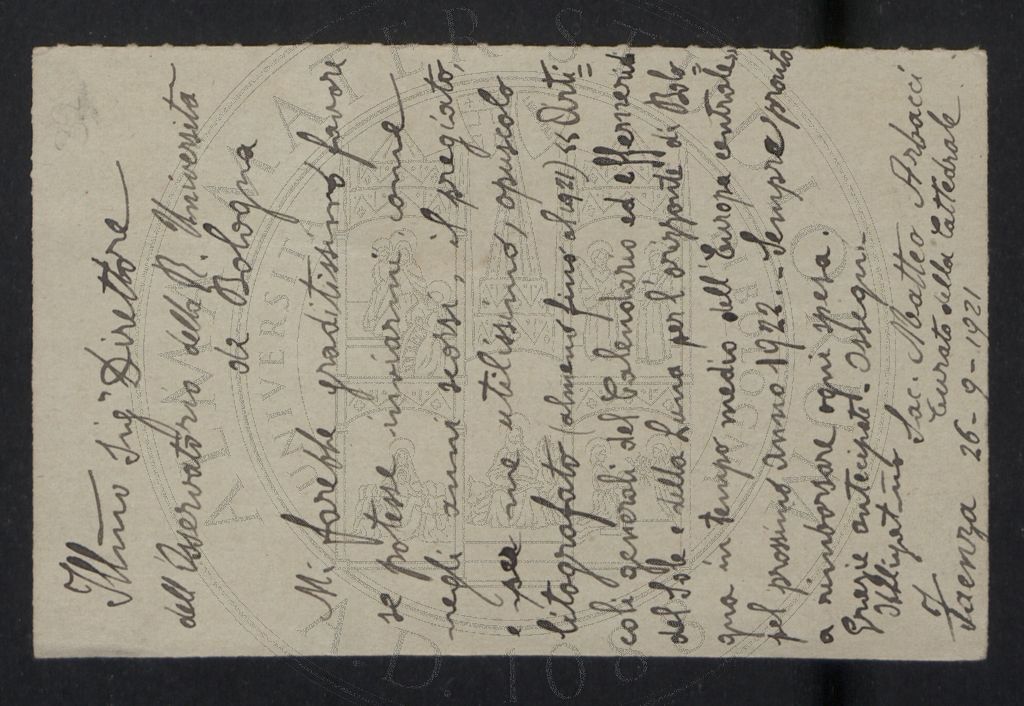 Illmo Sig Direttore
dell'Osservatorio della R. Università
di Bologna
Mi farebbe graditissimo favore
se potesse inviarmi, come
negli anni scorsi, il pregiato,
e per me utilissimo, opuscolo
litografato (almeno fino al 1921) "Arti=
coli generali del Calendario ed effemeridi
del Sole e della Luna per l'orizzonte di Bolo
gna in tempo medio dell'Europa centrale"
pel prossimo anno 1922. - Sempre pronto
a rimborsare ogni spesa.
Grazie anticipate - Ossequi -
Obbligat.mo
Sac. Matteo Arbacci
Curato della Cattedrale
Faenza 26-9-1921
ALMA MATER STUDIORUM
UNIVERSITÀ BOLOGNA
A.D. 1088